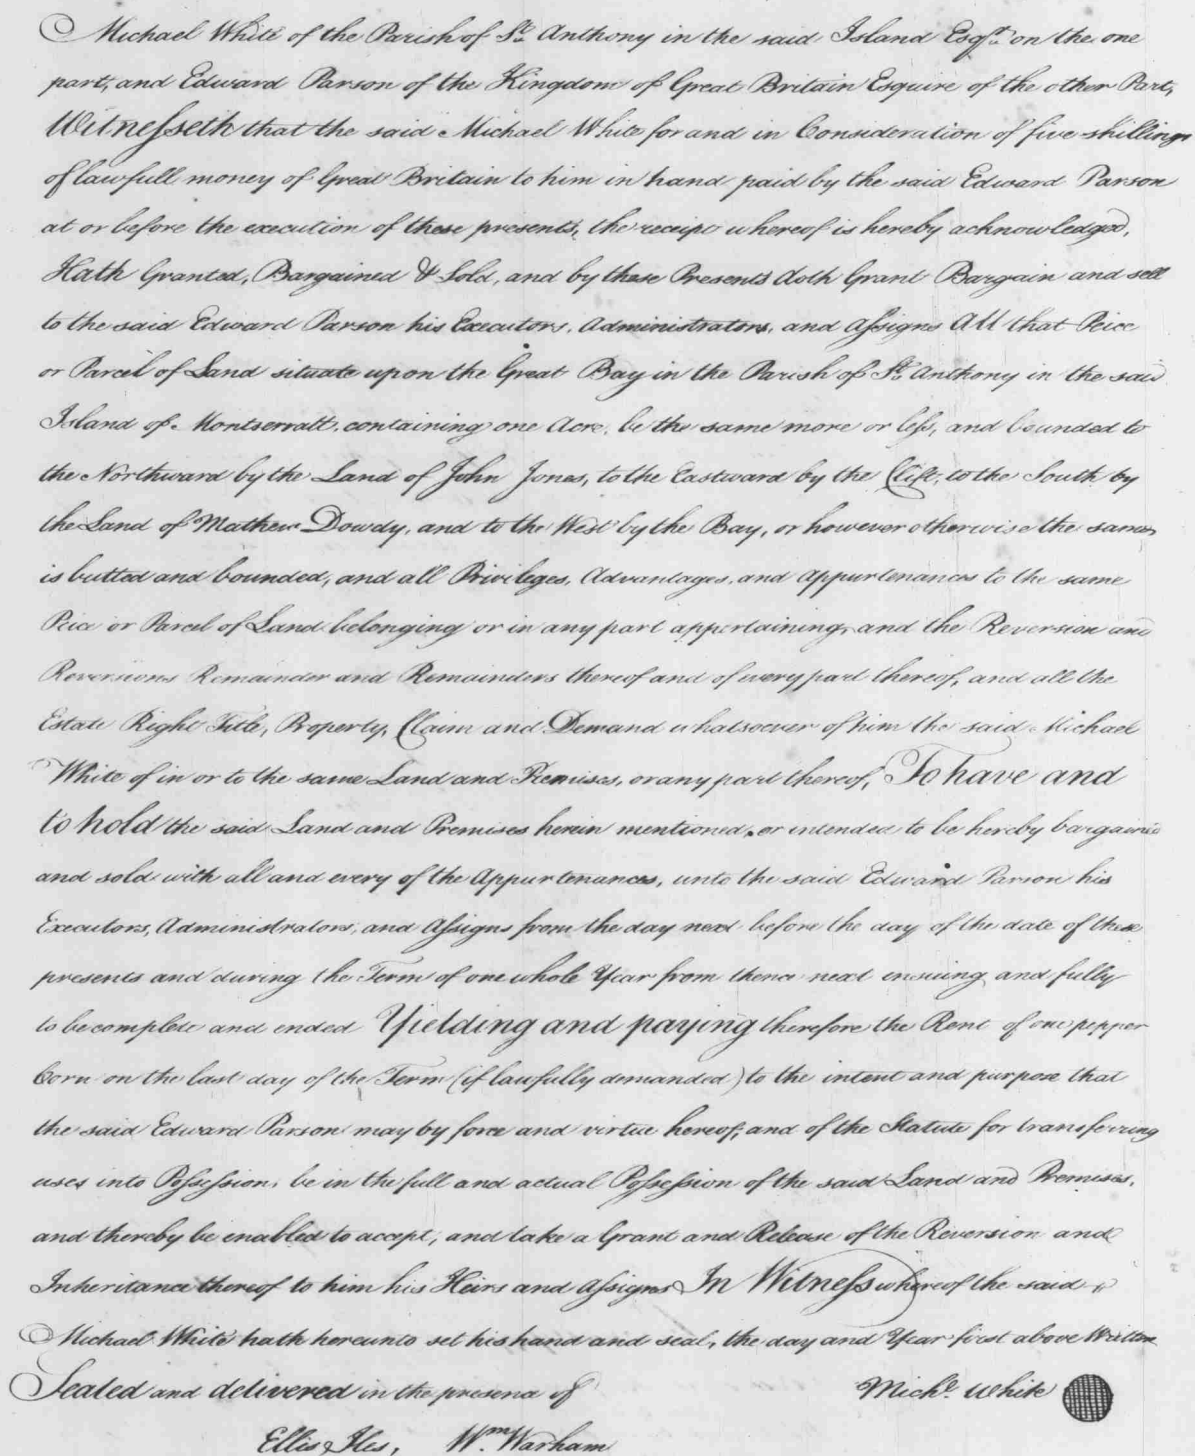 Michael White of the Parish of St. Anthony in the said Island Esqr. on the one
part, and Edward Parson of the Kingdom of Great Britain Esquire of the other Part,
Witnesseth that the said Michael White for and in Consideration of five shillings
of lawfull money of Great Britain to him in hand paid by the said Edward Parson
at or before the execution of these presents, the receipt whereof is hereby acknowledged,
Hath Granted, Bargained & Sold, and by these Presents doth Grant Bargain and sell
to the said Edward Parson his Executors, Administrators, and Assigns All that Peice
or Parcel of Land situate upon the Great Bay in the Parish of St. Anthony in the said
Island of Montserratt, containing one Acre, be the same more or less, and bounded to
the Northward by the Land of John Jones, to the Eastward by the Clift, to the South by
the Land of Mathew Dowdy, and to the West by the Bay, or however otherwise the same
is butted and bounded, and all Privileges, Advantages, and Appurtenances to the same
Peice or Parcel of Land belonging or in any part appertaining, and the Reversion and
Reversions Remainder and Remainders thereof and of every part thereof, and all the
Estate Right Title, Property, Claim and Demand whatsoever of him the said Michael
White of in or to the same Land and Premises, or any part thereof, To have and
to hold the said Land and Premises herein mentioned, or intended to be hereby bargained
and sold with all and every of the Appurtenances, unto the said Edward Parson his
Executors, Administrators, and Assigns from the day next before the day of the date of these
presents and during the Term of one whole Year from thence next ensuing and fully
to be complete and ended Yielding and paying therefore the Rent of one pepper
Corn on the last day of the Term (if lawfully demanded) to the intent and purpose that
the said Edward Parson may by force and virtue hereof, and of the Statute for transfering
uses into Possession, be in the full and actual Possession of the said Land and Premises,
and thereby be enabled to accept, and take a Grant and Release of the Reversion and
Inheritance thereof to him his Heirs and Assigns In Witness whereof the said
Michael White hath hereunto set his hand and seal, the day and Year first above Written
Sealed and delivered in the presence of Michl. White
Ellis Iles, Wm. Warham